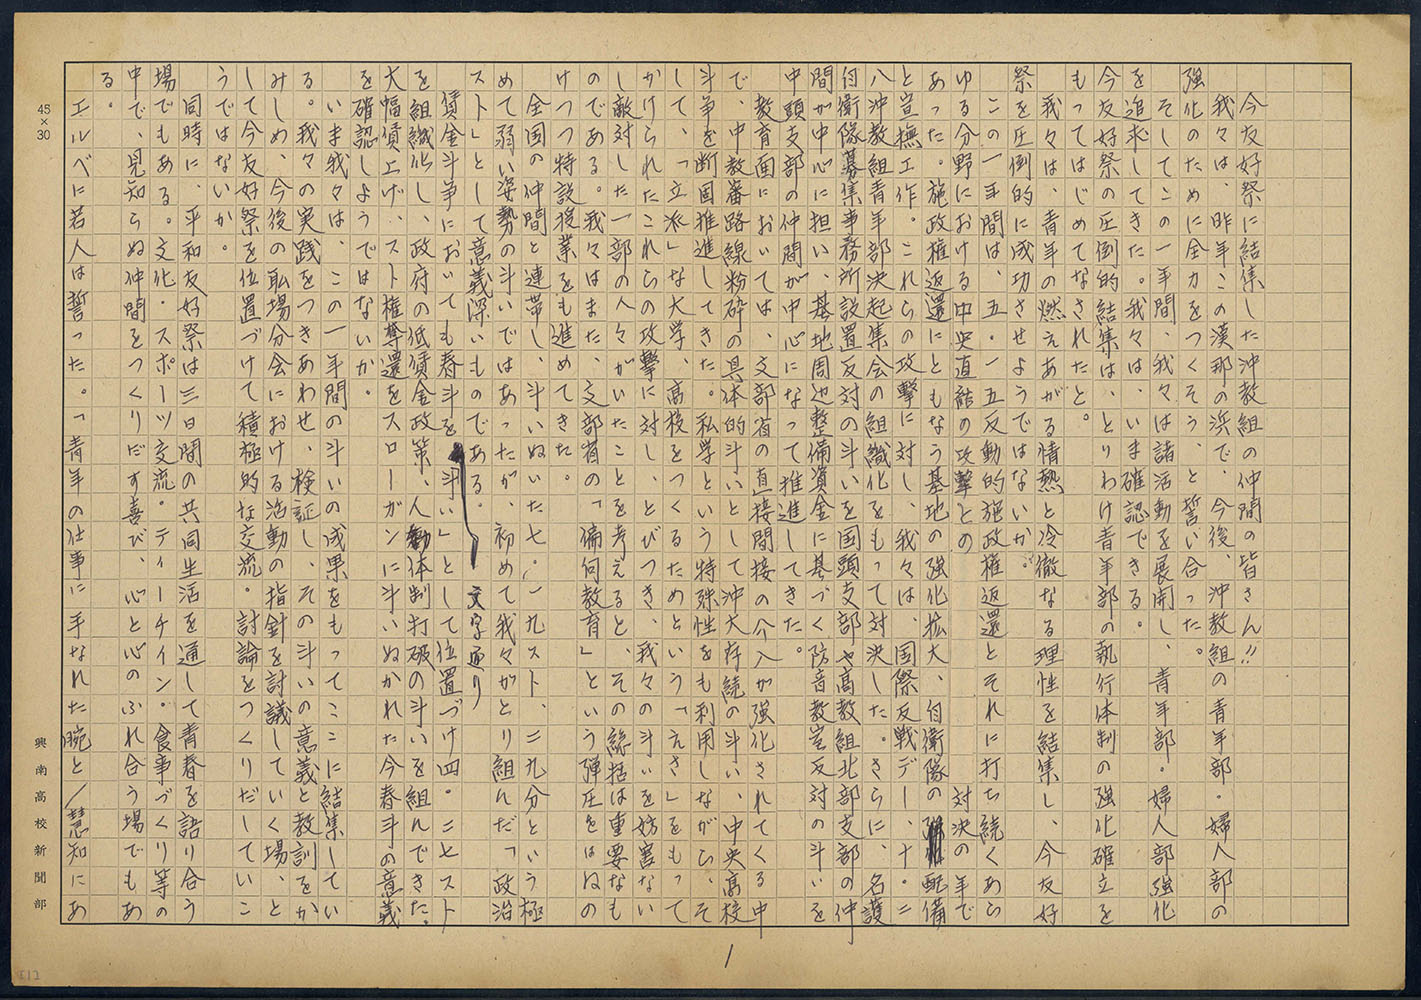 今友好祭に結集した沖教組の仲間の皆さん!!
我々は、昨年この漢那の浜で、今後、沖教組の青年部・婦人部の
強化のために全力をつくそう、と誓い合った。
そしてこの一年間、我々は諸活動を展開し、青年部・婦人部強化
を追求してきた。我々は、いま確認できる。
今友好祭の圧倒的結集は、とりわけ青年部の執行体制の強化確立を
もってはじめてなされたと。
我々は、青年の燃えあがる情熱と冷徹なる理性を結集し、今友好
祭を圧倒的に成功させようではないか。
この一年間は、五・一五反動的施政権返還とそれに打ち続くあら
ゆる分野における中央直結の攻撃との対決の年で
あった。施政権返還にともなう基地の強化拡大、自衛隊の配備
と宣撫工作。これらの攻撃に対し、我々は、国際反戦デー、十・二
八沖教組青年部決起集会の組織化をもって対決した。さらに、名護
自衛隊募集事務所設置反対の斗いを国頭支部や高教組北部支部の仲
間が中心に担い、基地周辺整備資金に基づく防音教室反対の斗いを
中頭支部の仲間が中心になって推進してきた。
教育面においては、文部省の直接間接の介入が強化されてくる中
で、中教審路線粉砕の具体的斗いとして沖大存続の斗い、中央高校
斗争を断固推進してきた。私学という特殊性をも利用しながら、そ
して、「立派」な大学、高校をつくるためという「えさ」をもって
かけられたこれらの攻撃に対し、とびつき、我々の斗いを妨害ない
し敵対した一部の人々がいたことを考えると、その総括は重要なも
のである。我々はまた、文部省の「偏向教育」という弾圧をはねの
けつつ特設授業をも進めてきた。
全国の仲間と連帯し、斗いぬいた七・一九スト、二九分という極
めて弱い姿勢の斗いではあったが、初めて我々がとり組んだ「政治
スト」として意義深いものである。文字通り
賃金斗争においても春斗を「斗い」として位置づけ四・二七スト
を組織化し、政府の低賃金政策、人勧体制打破の斗いを組んできた。
大幅賃上げ、スト権奪還をスローガンに斗いぬかれた今春斗の意義
を確認しようではないか。
いま我々は、この一年間の斗いの成果をもってここに結集してい
る。我々の実践をつきあわせ、検証し、その斗いの意義と教訓をか
みしめ、今後の職場分会における活動の指針を討議していく場、と
して今友好祭を位置づけて積極的な交流・討論をつくりだしていこ
うではないか。
同時に、平和友好祭は三日間の共同生活を通して青春を語り合う
場でもある。文化・スポーツ交流・ティーチイン・食事づくり等の
中で、見知らぬ仲間をつくりだす喜び、心と心のふれ合う場でもあ
る。
エルベに若人は誓った。「青年の仕事に手なれた腕と/慧知にあ
45×30
興南高校新聞部
1
112